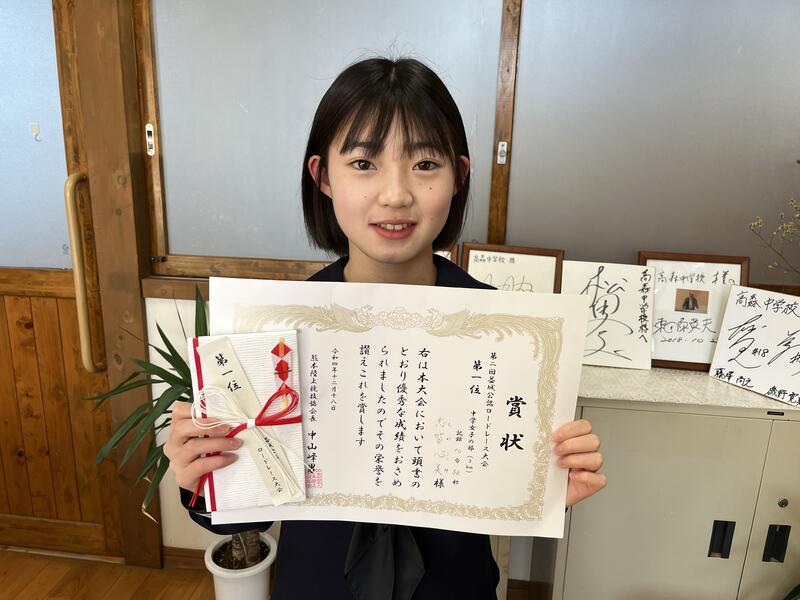 賞状
第二回益城公認ロードレース大会
中学女子の部(3km)
第一位
記録
様
右は本大会において頭書の
とおり優秀な成績をおさめ
られましたのでその栄誉を
讃えこれを賞します
令和四年十二月十八日
熊本陸上競技協会長 中山峰男
第一位
ロードレース大会
高森中学校 様
高森中学校様へ
高森中学校 様
2018.10.2
高森中学校
#18